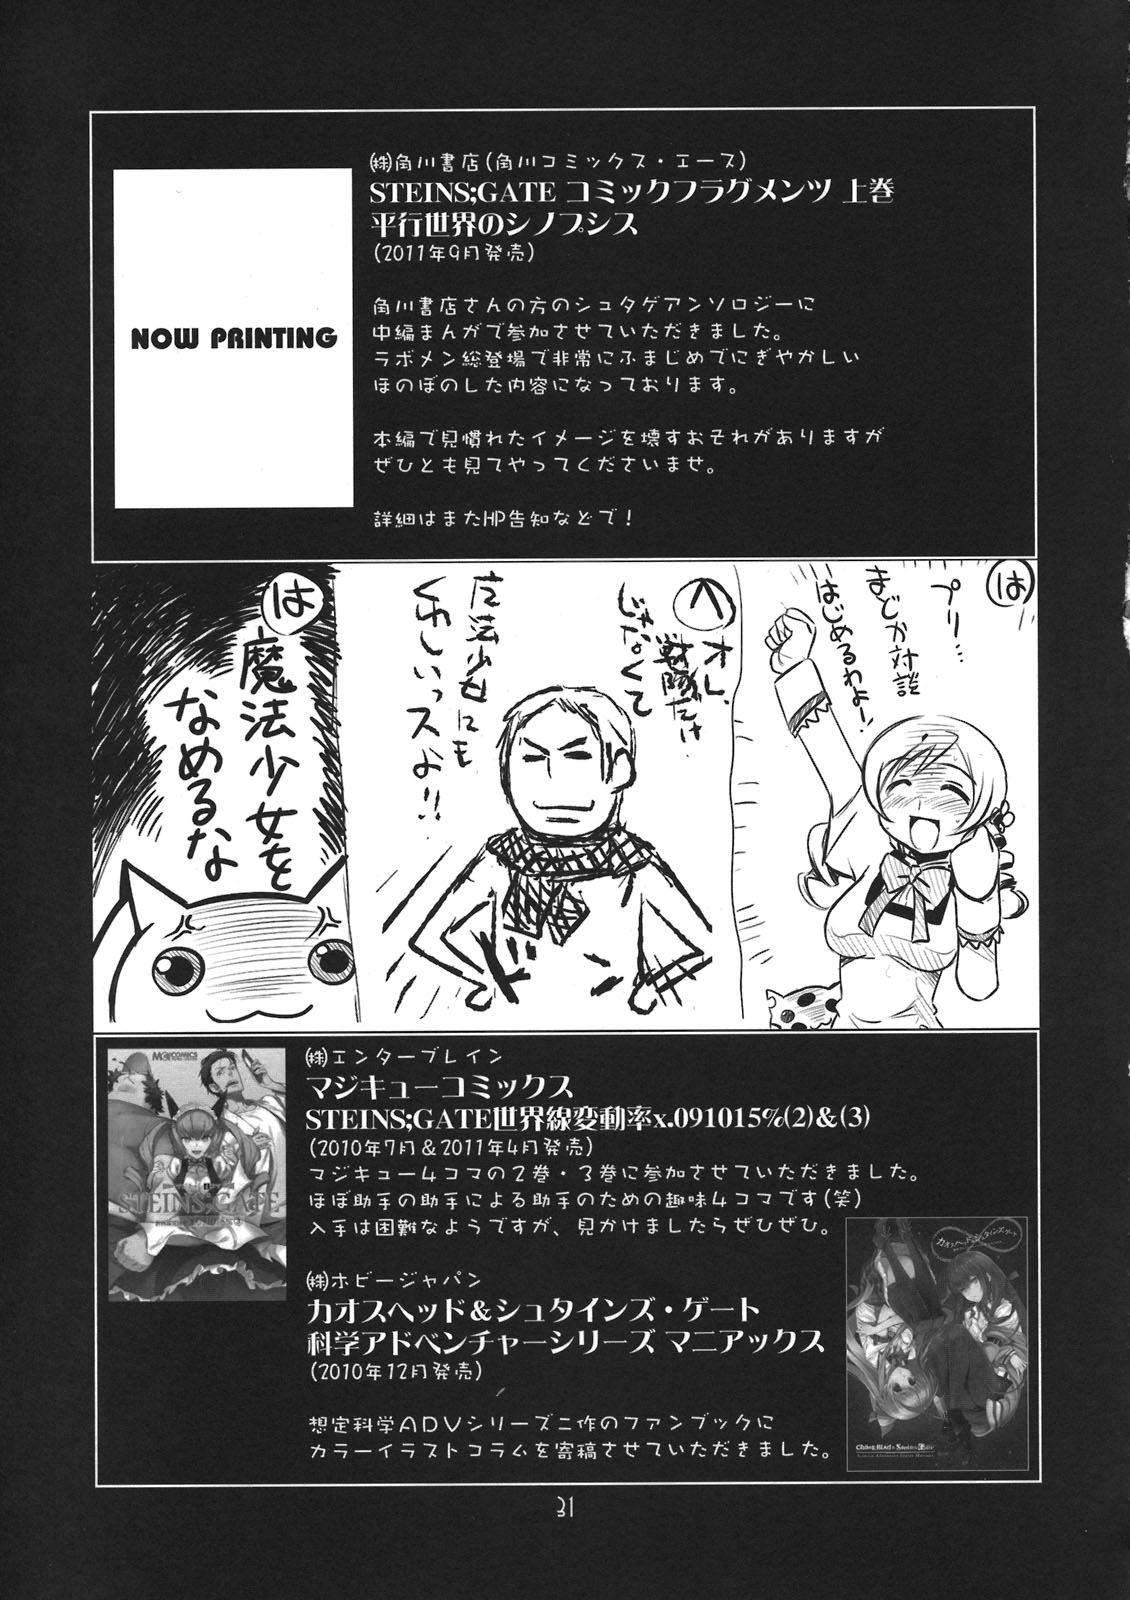 ㈱角川書店(角川コミックス・エース)
STEINS;GATE コミックフラグメンツ 上巻
平行世界のシノプシス
(2011年9月発売)
NOW PRINTING
角川書店さんの方のシュタゲアンソロジーに
中編まんがで参加させていただきました。
ラボメン総登場で非常にふまじめでにぎやかしい
ほのぼのした内容になっております。
本編で見慣れたイメージを壊すおそれがありますが
ぜひとも見てやってくださいませ。
詳細はまたHP告知などで!
は
プリ…
まどか対談
はじめるわよー!
へ
オレ、
戦隊だけ
じゃなくて
魔法少女にも
くわしいっスよ!!
ドン
は
魔法少女を
なめるな
㈱エンターブレイン
マジキューコミックス
STEINS;GATE世界線変動率x.091015%(2)&(3)
(2010年7月&2011年4月発売)
マジキュー4コマの2巻・3巻に参加させていただきました。
ほぼ助手の助手による助手のための趣味4コマです(笑)
入手は困難なようですが、見かけましたらぜひぜひ。
MCOMICS
STEINS;GATE
㈱ホビージャパン
カオスヘッド&シュタインズ・ゲート
科学アドベンチャーシリーズ マニアックス
(2010年12月発売)
想定科学ADVシリーズ二作のファンブックに
カラーイラストコラムを寄稿させていただきました。
カオスヘッド&シュタインズ・ゲート
Chaos;Head & Steins;Gate
31